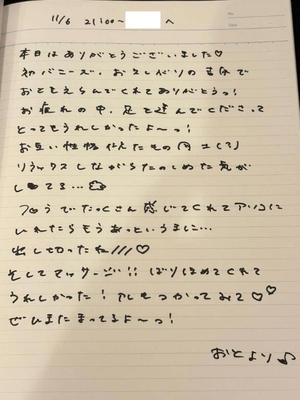 11/6 21:00~ へ
本日はありがとうございました♡
初バニーズ、お久しぶりの
おとをえらんでくれてありがとうっ!
お疲れの中、足を運んでくださって
とってもうれしかったよ〜っ!
お互い
リラックスしながらたのしめた気が
してる...
でたくさん感じてくれて
いれたらもうあっというまに...
出し切ったね///♡
そしてマッサージ!! ほめてくれて
うれしかった! またつかってみて♡♡
ぜひまたまってるよ〜っ!
おとより♪
No.
Date